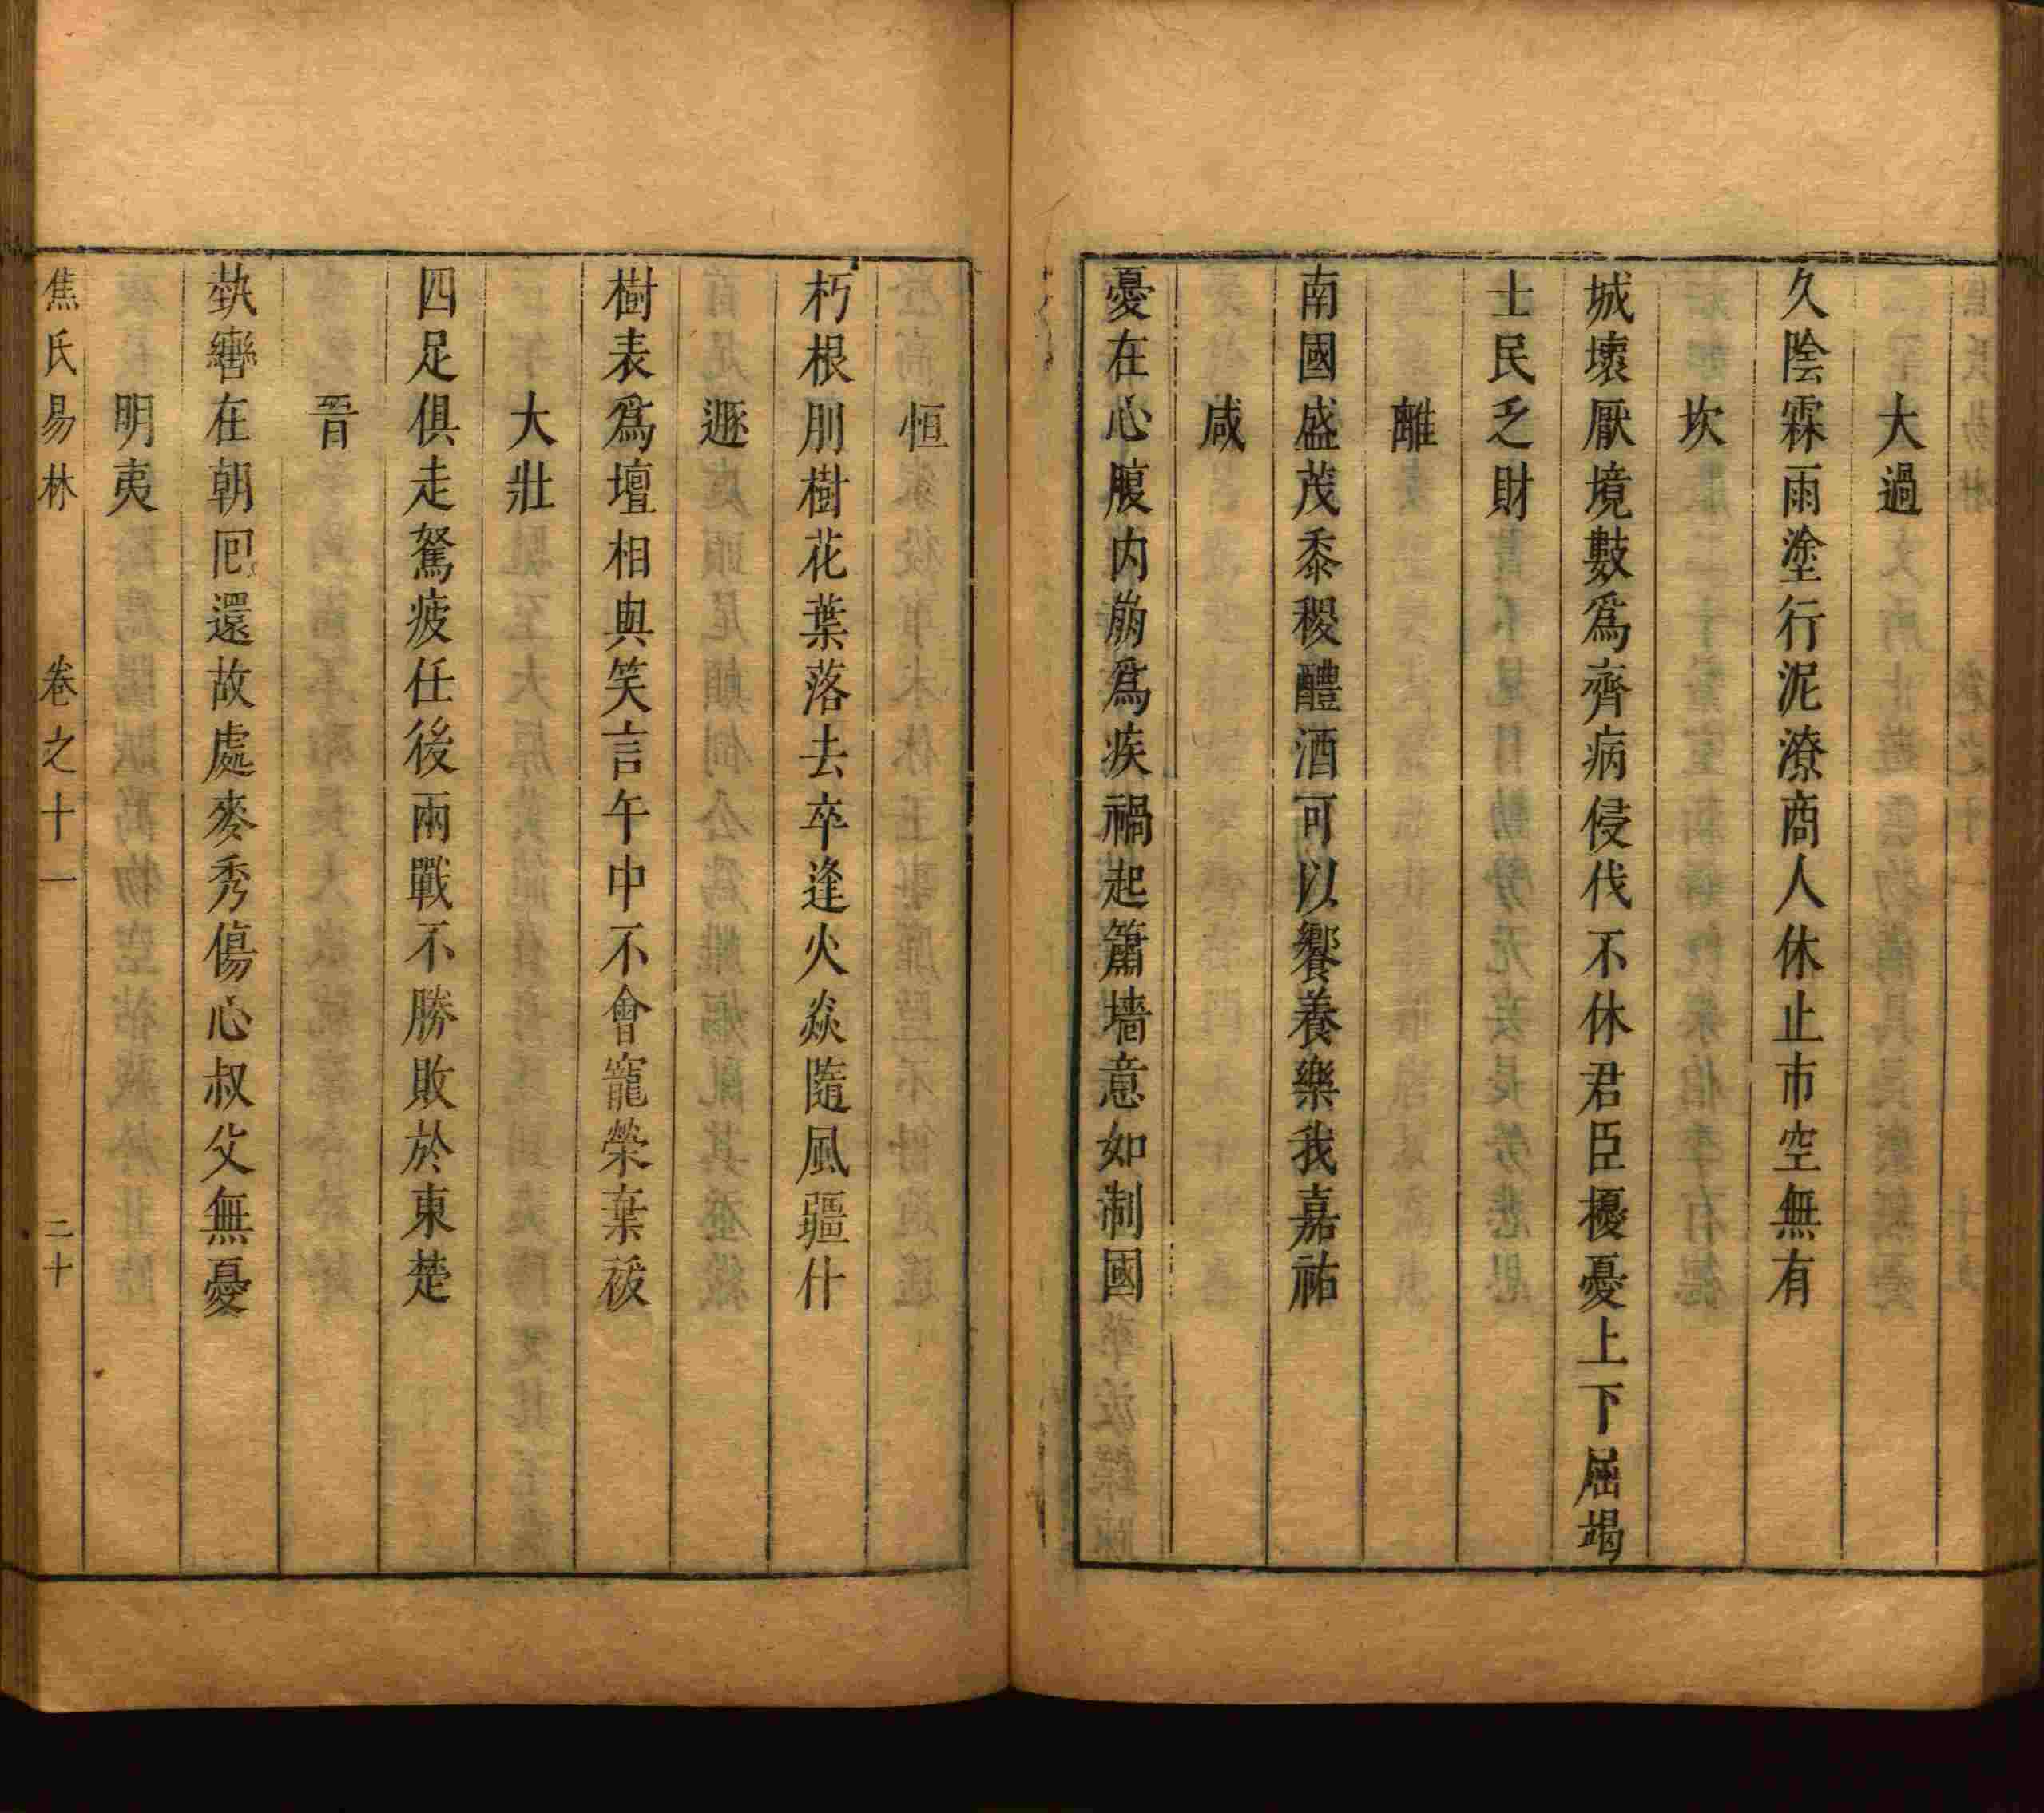 大過
久陰霖雨塗行泥潦商人休止市空無有
坎
城壞厭境數爲齊病侵伐不休君臣擾憂上下屈竭
士民乏財
離
南國盛茂黍稷醴酒可以饗養樂我嘉祐
咸
憂在心腹内崩爲疾禍起簫墻意如制國
恒
朽根刖樹花葉落去卒逢火焱隨風疆什
遯
樹表爲壇相與笑言午中不會寵榮棄𥙷
大壯
四足俱走駑疲任後兩戰不勝敗於東楚
晋
執轡在朝回還故處麥秀傷心叔父無憂
明夷
焦氏易林 卷之十一 二十